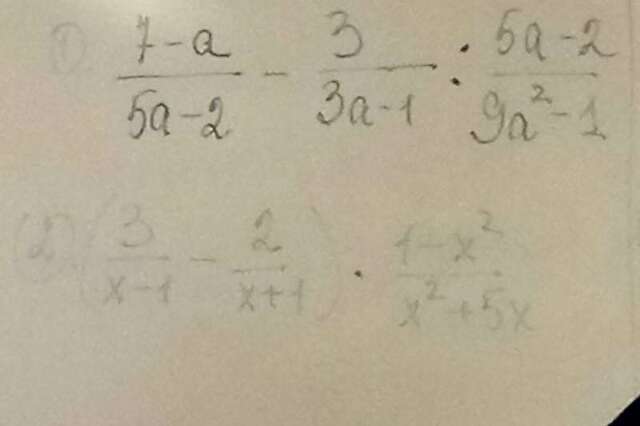 1) (7-a)/(5a-2) - 3/(3a-1) : (5a-2)/(9a²-1)
(2) (3/(x-1) - 2/(x+1)) · (1-x²)/(x²+5x)